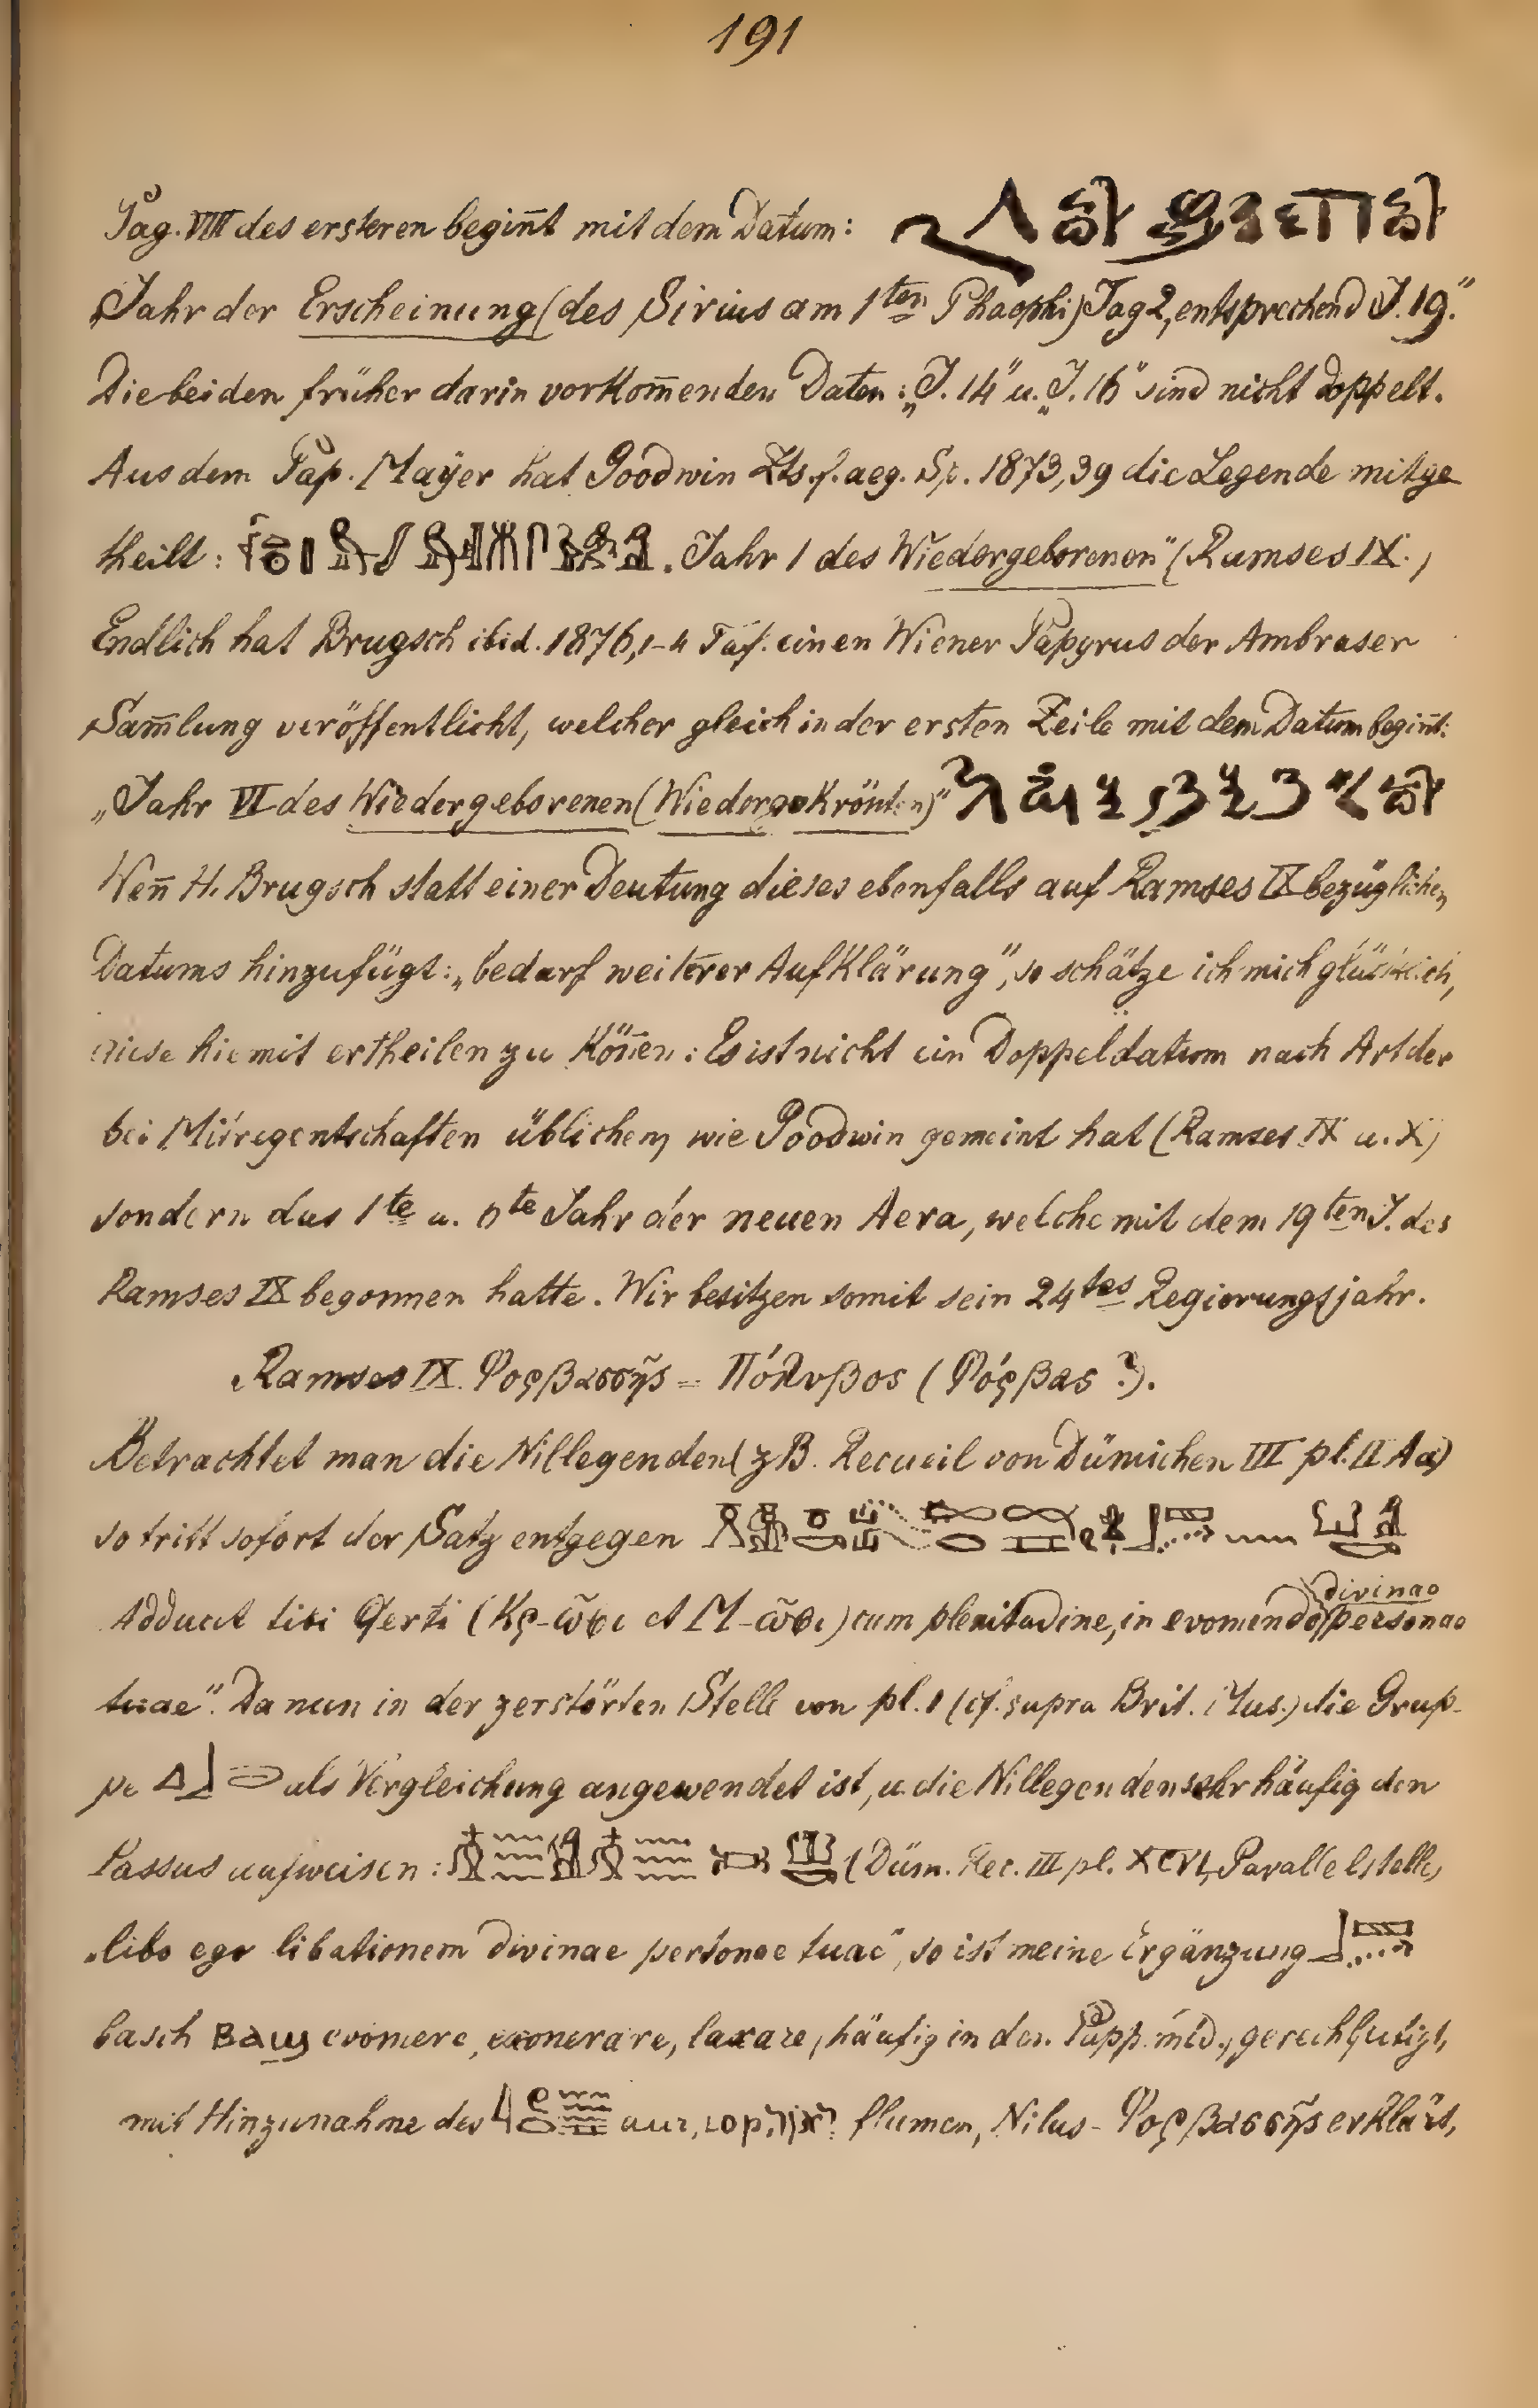 191
Pag. VIII des ersteren begiñt mit dem Datum:
„Jahr der Erscheinung (des Sirius am 1ten Phaophi) Tag 2, entsprechend J. 19."
Die beiden früher darin vorkom̄enden Daten: „J. 14" u. „J. 16" sind nicht doppelt.
Aus dem Pap. Mayer hat Goodwin Zts. f. aeg. Sp. 1873, 39 die Legende mitge
theilt: „Jahr 1 des Wiedergeborenen" (Ramses IX.)
Endlich hat Brugsch ibid. 1876, 1-4 Taf. einen Wiener Papyrus der Ambraser
Sam̄lung veröffentlicht, welcher gleich in der ersten Zeile mit dem Datum begiñt:
„Jahr VI des Wiedergeborenen (Wiedergekrönten)"
Weñ H. Brugsch statt einer Deutung dieses ebenfalls auf Ramses IX bezüglichen
Datums hinzufügt: „bedarf weiterer Aufklärung", so schätze ich mich glücklich,
diese hiemit ertheilen zu köñen: Es ist nicht ein Doppeldatum nach Art der
bei Mitregentschaften üblichen, wie Goodwin gemeint hat (Ramses IX u. X)
sondern das 1te u. 6te Jahr der neuen Aera, welche mit dem 19ten J. des
Ramses IX begonnen hatte. Wir besitzen somit sein 24tes Regierungsjahr.
Ramses IX. Φορβασσῆς = Πόλυβος (Φόρβας?).
Betrachtet man die Nillegenden (z B. Recueil von Dümichen III pl. II Aa)
so tritt sofort der Satz entgegen
Adducit tibi Qerti (Κρ-ῶφι et Μ-ῶφι) cum plenitudine, in evomendo divinae personae
tuae". Da nun in der zerstörten Stelle von pl. 1 (cf. supra Brit. Mus.) die Grup-
pe als Vergleichung angewendet ist, u. die Nillegenden sehr häufig den
Passus aufweisen: (Düm. Rec. III pl. XCVI, Parallelstelle)
„libo ego libationem divinae personae tuae", so ist meine Ergänzung
basch ⲃⲁϣ evomere, exonerare, laxare, häufig in den Papp. med., gerechtfertigt,
mit Hinzunahme des aur, flumen, Nilus - Φορβασσῆς erklärt,